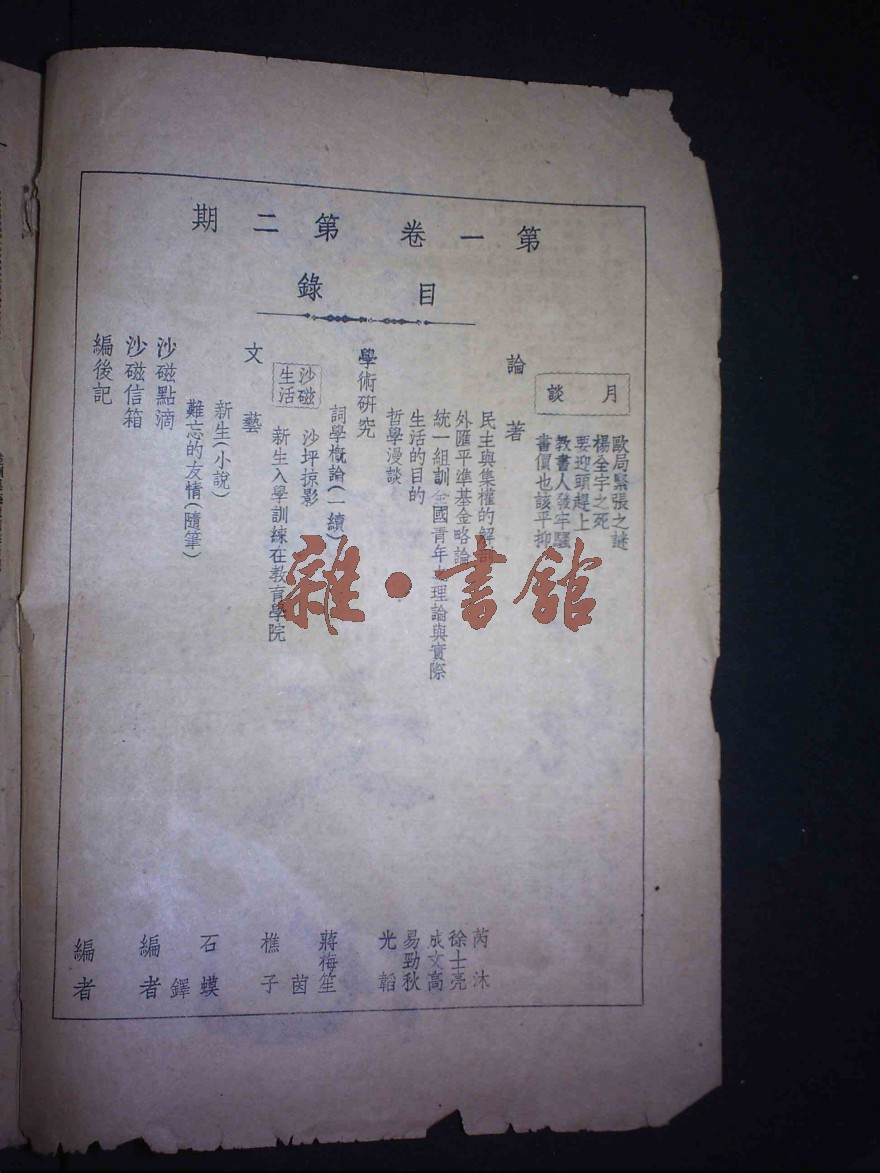 第一卷第二期
目錄
月談
歐局緊張之謎
楊全宇之死
要迎頭趕上
教書人發牢騷
書價也該平抑
論著
民主與集權的解剖
芮沐
外匯平準基金略論
徐士亮
統一組訓全國青年之理論與實際
成文高
生活的目的
易勁秋
哲學漫談
光韜
學術研究
詞學概論(一續)
蔣梅笙
沙磁生活
沙坪掠影
茵
新生入學訓練在教育學院
樵子
文藝
新生(小說)
石蟆
難忘的友情(隨筆)
鐸
沙磁點滴
沙磁信箱
編者
編後記
編者
雜·書館